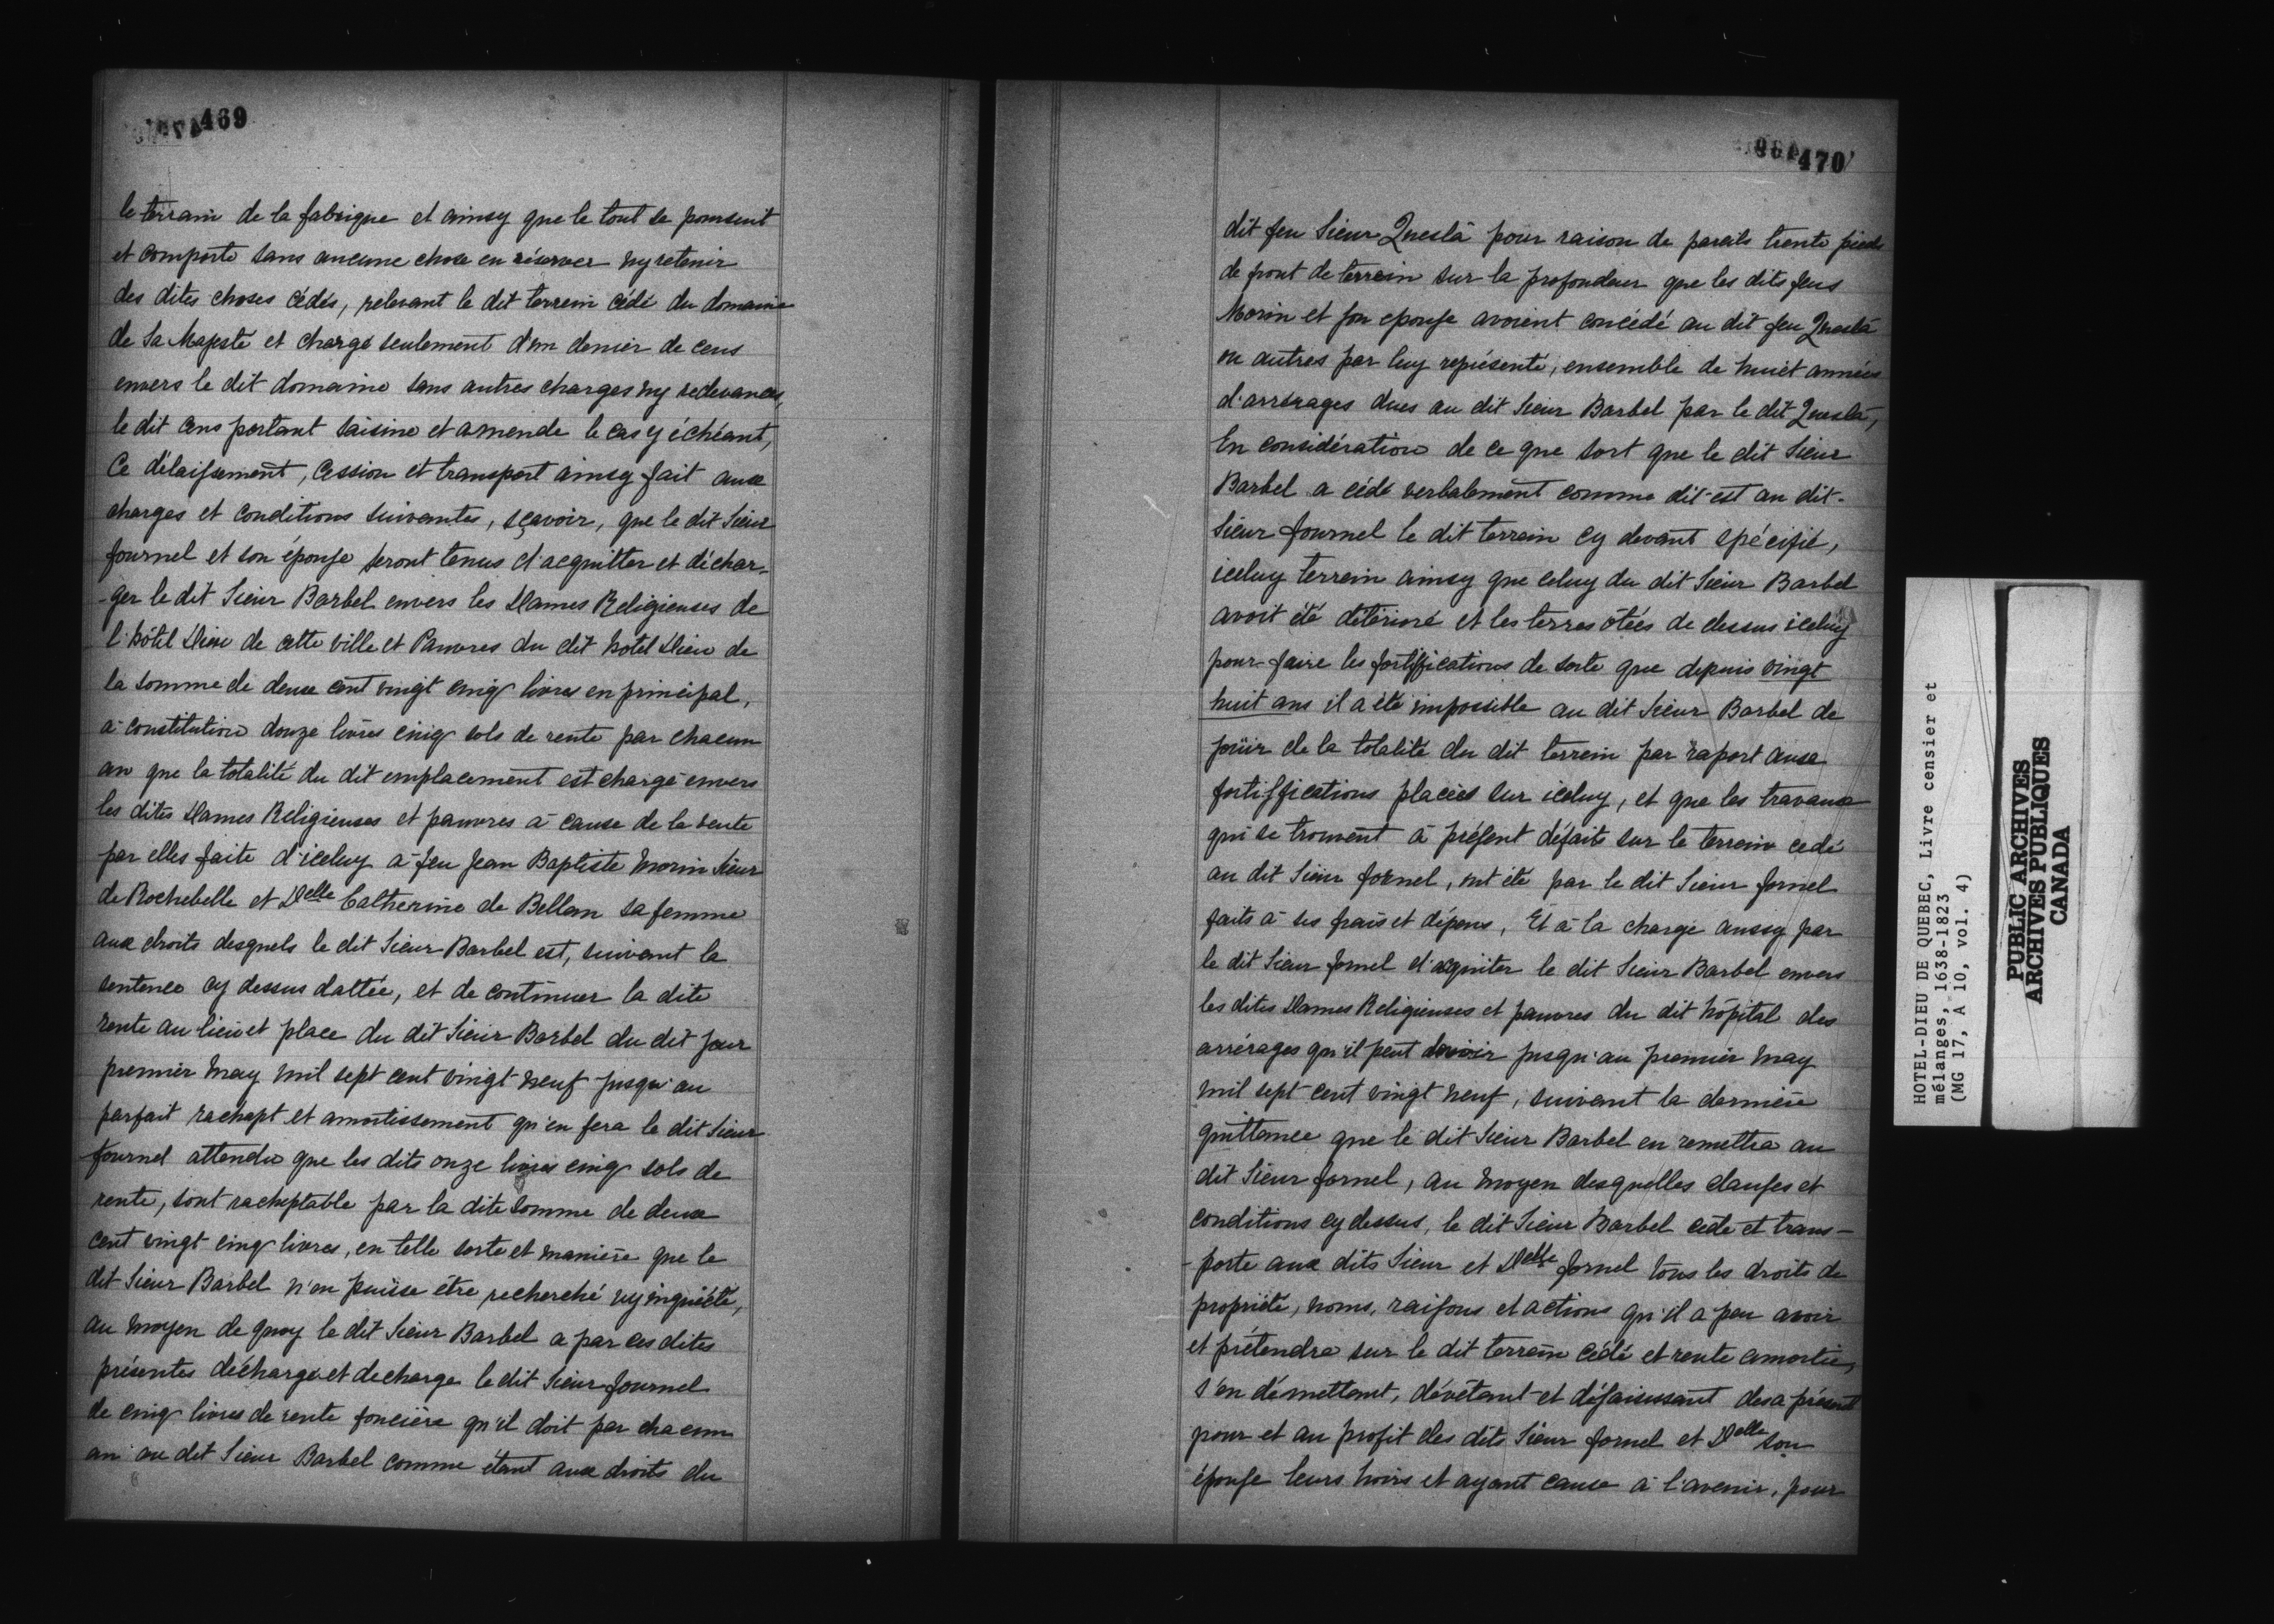 469
le terrain de la fabrique et ainsy que le tout se poursuit
et comporte sans aucune chose en réserver ny retenir
des dites choses cédés, relevant le dit terrein cédé du domaine
de Sa Majesté et chargé seulement d'un denier de cens
envers le dit domaine sans autres charges ny redevances,
le dit cens portant saisine et amende le cas y échéant,
Ce délaissement, cession et transport ainsy fait aux
charges et conditions suivantes, sçavoir, que le dit Sieur
fournel et son épouse seront tenus d'acquitter et déchar-
-ger le dit Sieur Barbel envers les Dames Religieuses de
l'hôtel Dieu de cette ville et Pauvres du dit hôtel Dieu de
la somme de deux cent vingt cinq livres en principal,
à constitution douze livres cinq sols de rente par chacun
an que la totalité du dit emplacement est chargé envers
les dites Dames Religieuses et pauvres à cause de la vente
par elles faite d'iceluy à feu Jean Baptiste Morin Sieur
de Rochebelle et Delle Catherine de Bellan sa femme
aux droits desquels le dit Sieur Barbel est, suivant la
sentence cy dessus dattée, et de continuer la dite
rente au lieu et place du dit Sieur Barbel du dit jour
premier May mil sept cent vingt neuf jusqu'au
parfait rachapt et amortissement qu'en fera le dit Sieur
fournel attendu que les dits onze livres cinq sols de
rente, sont racheptable par la dite somme de deux
cent vingt cinq livres, en telle sorte et manière que le
dit Sieur Barbel n'en puisse être recherché ny inquiété,
au moyen de quoy le dit Sieur Barbel a par ces dites
présentes déchargé et decharge le dit Sieur fournel
de cinq livres de rente foncière qu'il doit par chacun
an au dit Sieur Barbel comme étant aux droits du
470
dit feu Sieur Queslà pour raison de pareils trente pieds
de front de terrein sur la profondeur que les dits feus
Morin et son epouse avoient concédé au dit feu Queslà
ou autres par luy représenté, ensemble de huict années
d'arrérages dues au dit Sieur Barbel par le dit Queslà,
En considération de ce que sort que le dit Sieur
Barbel a cédé verbalement comme dit est au dit-
Sieur fournel le dit terrein cy devant spécifié,
iceluy terrein ainsy que celuy du dit Sieur Barbel
avoit été détérioré et les terres ôtées de dessus iceluy
pour faire les fortiffications de sorte que depuis vingt
huit ans il a été impossible au dit Sieur Barbel de
joüir de la totalité du dit terrein par raport aux
fortiffications placées sur iceluy, et que les travaux
qui se trouvent à présent défaits sur le terrein cedé
au dit Sieur fornel, ont été par le dit Sieur fornel
faits à ses frais et dépens, Et à la charge aussy par
le dit Sieur fornel d'acquiter le dit Sieur Barbel envers
les dites Dames Religieuses et pauvres du dit hôpital des
arrérages qu'il peut devoir jusqu'au premier May
mil sept cent vingt neuf, suivant la dernière
quittance que le dit Sieur Barbel en remettra au
dit Sieur fornel, au moyen desquelles clauses et
conditions cy dessus, le dit Sieur Barbel cède et trans-
-porte aux dits Sieur et Delle fornel tous les droits de
propriété, noms, raisons et actions qu'il a peu avoir
et prétendre sur le dit terrein cédé et rente amortie,
s'en démettant, dévétant et désaisissant des a présent
pour et au profit des dits Sieur fornel et Delle son
épouse leurs hoirs et ayant cause à l'avenir, pour
HOTEL-DIEU DE QUEBEC, Livre censier et
mélanges, 1638-1823
(MG 17, A 10, vol. 4)
PUBLIC ARCHIVES
ARCHIVES PUBLIQUES
CANADA